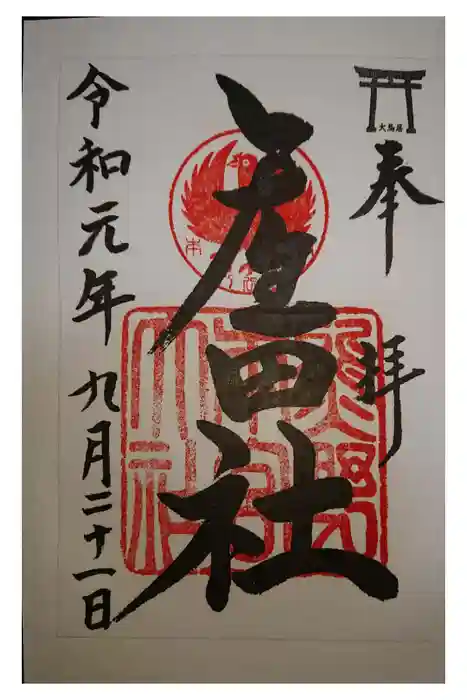 大鳥居
奉拝
産田社
令和元年九月二十一日